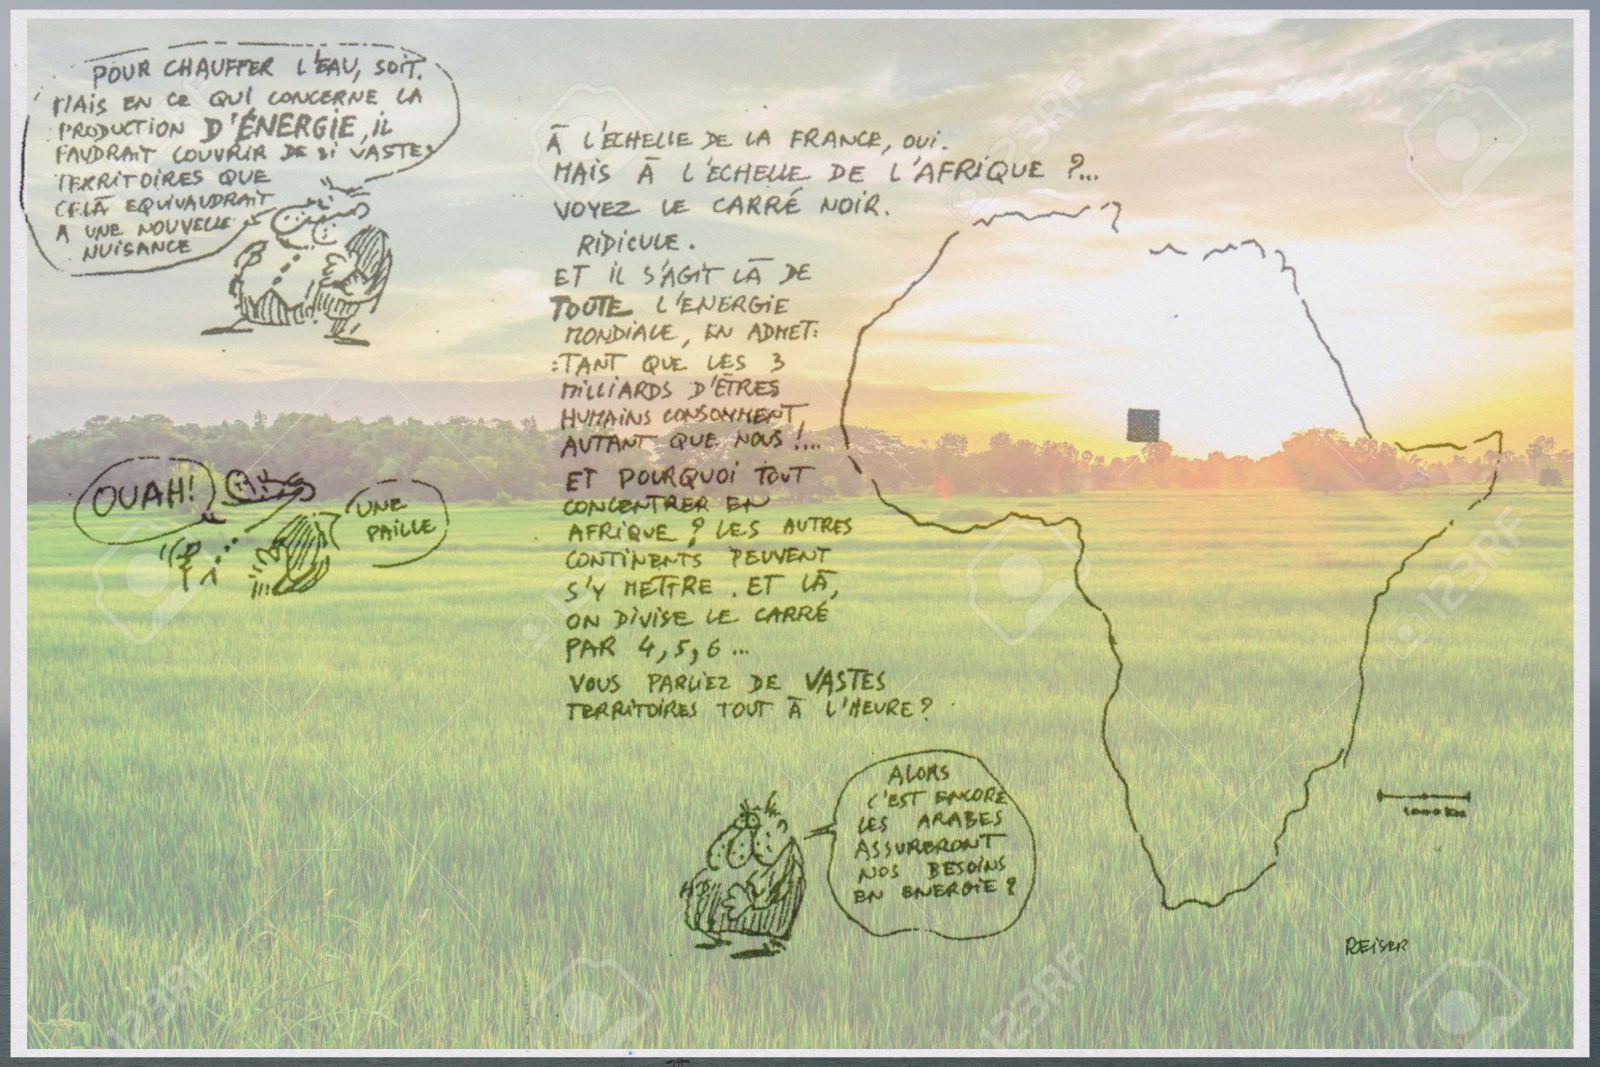 POUR CHAUFFER L'EAU, SOIT.
MAIS EN CE QUI CONCERNE LA
PRODUCTION D'ÉNERGIE, IL
FAUDRAIT COUVRIR DE SI VASTES
TERRITOIRES QUE
CELÀ EQUIVAUDRAIT
A UNE NOUVELLE
NUISANCE
OUAH!
UNE
PAILLE
À L'ECHELLE DE LA FRANCE, OUI.
MAIS À L'ECHELLE DE L'AFRIQUE ?...
VOYEZ LE CARRÉ NOIR.
RIDICULE.
ET IL S'AGIT LÀ DE
TOUTE L'ENERGIE
MONDIALE, EN ADMET:
:TANT QUE LES 3
MILLIARDS D'ÊTRES
HUMAINS CONSOMMENT
AUTANT QUE NOUS!...
ET POURQUOI TOUT
CONCENTRER EN
AFRIQUE ? LES AUTRES
CONTINENTS PEUVENT
S'Y METTRE. ET LÀ,
ON DIVISE LE CARRÉ
PAR 4, 5, 6...
VOUS PARLIEZ DE VASTES
TERRITOIRES TOUT À L'HEURE?
ALORS
C'EST ENCORE
LES ARABES
ASSURERONT
NOS BESOINS
EN ENERGIE?
1000 KM
REISER
123RF
123RF
123RF
123RF
123RF
123RF
123RF
123RF
123RF